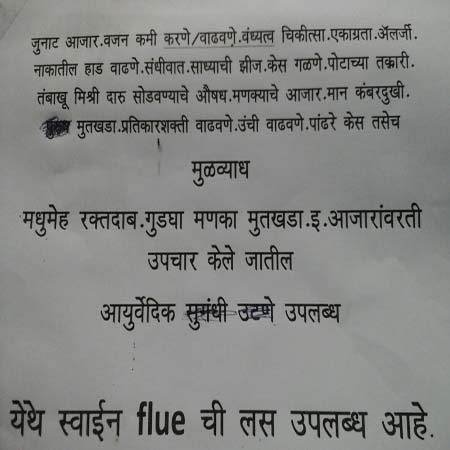 जुनाट आजार.वजन कमी करणे/वाढवणे.वंध्यत्व चिकीत्सा.एकाग्रता.ॲलर्जी.
नाकातील हाड वाढणे.संधीवात.साध्याची झीज.केस गळणे.पोटाच्या तक्रारी.
तंबाखू मिश्री दारु सोडवण्याचे औषध.मणक्याचे आजार.मान कंबरदुखी.
मुतखडा.प्रतिकारशक्ती वाढवणे.उंची वाढवणे.पांढरे केस तसेच
मुळव्याध
मधुमेह रक्तदाब.गुडघा मणका मुतखडा.इ.आजारांवरती
उपचार केले जातील
आयुर्वेदिक सुगंधी उटणे उपलब्ध
येथे स्वाईन flue ची लस उपलब्ध आहे.